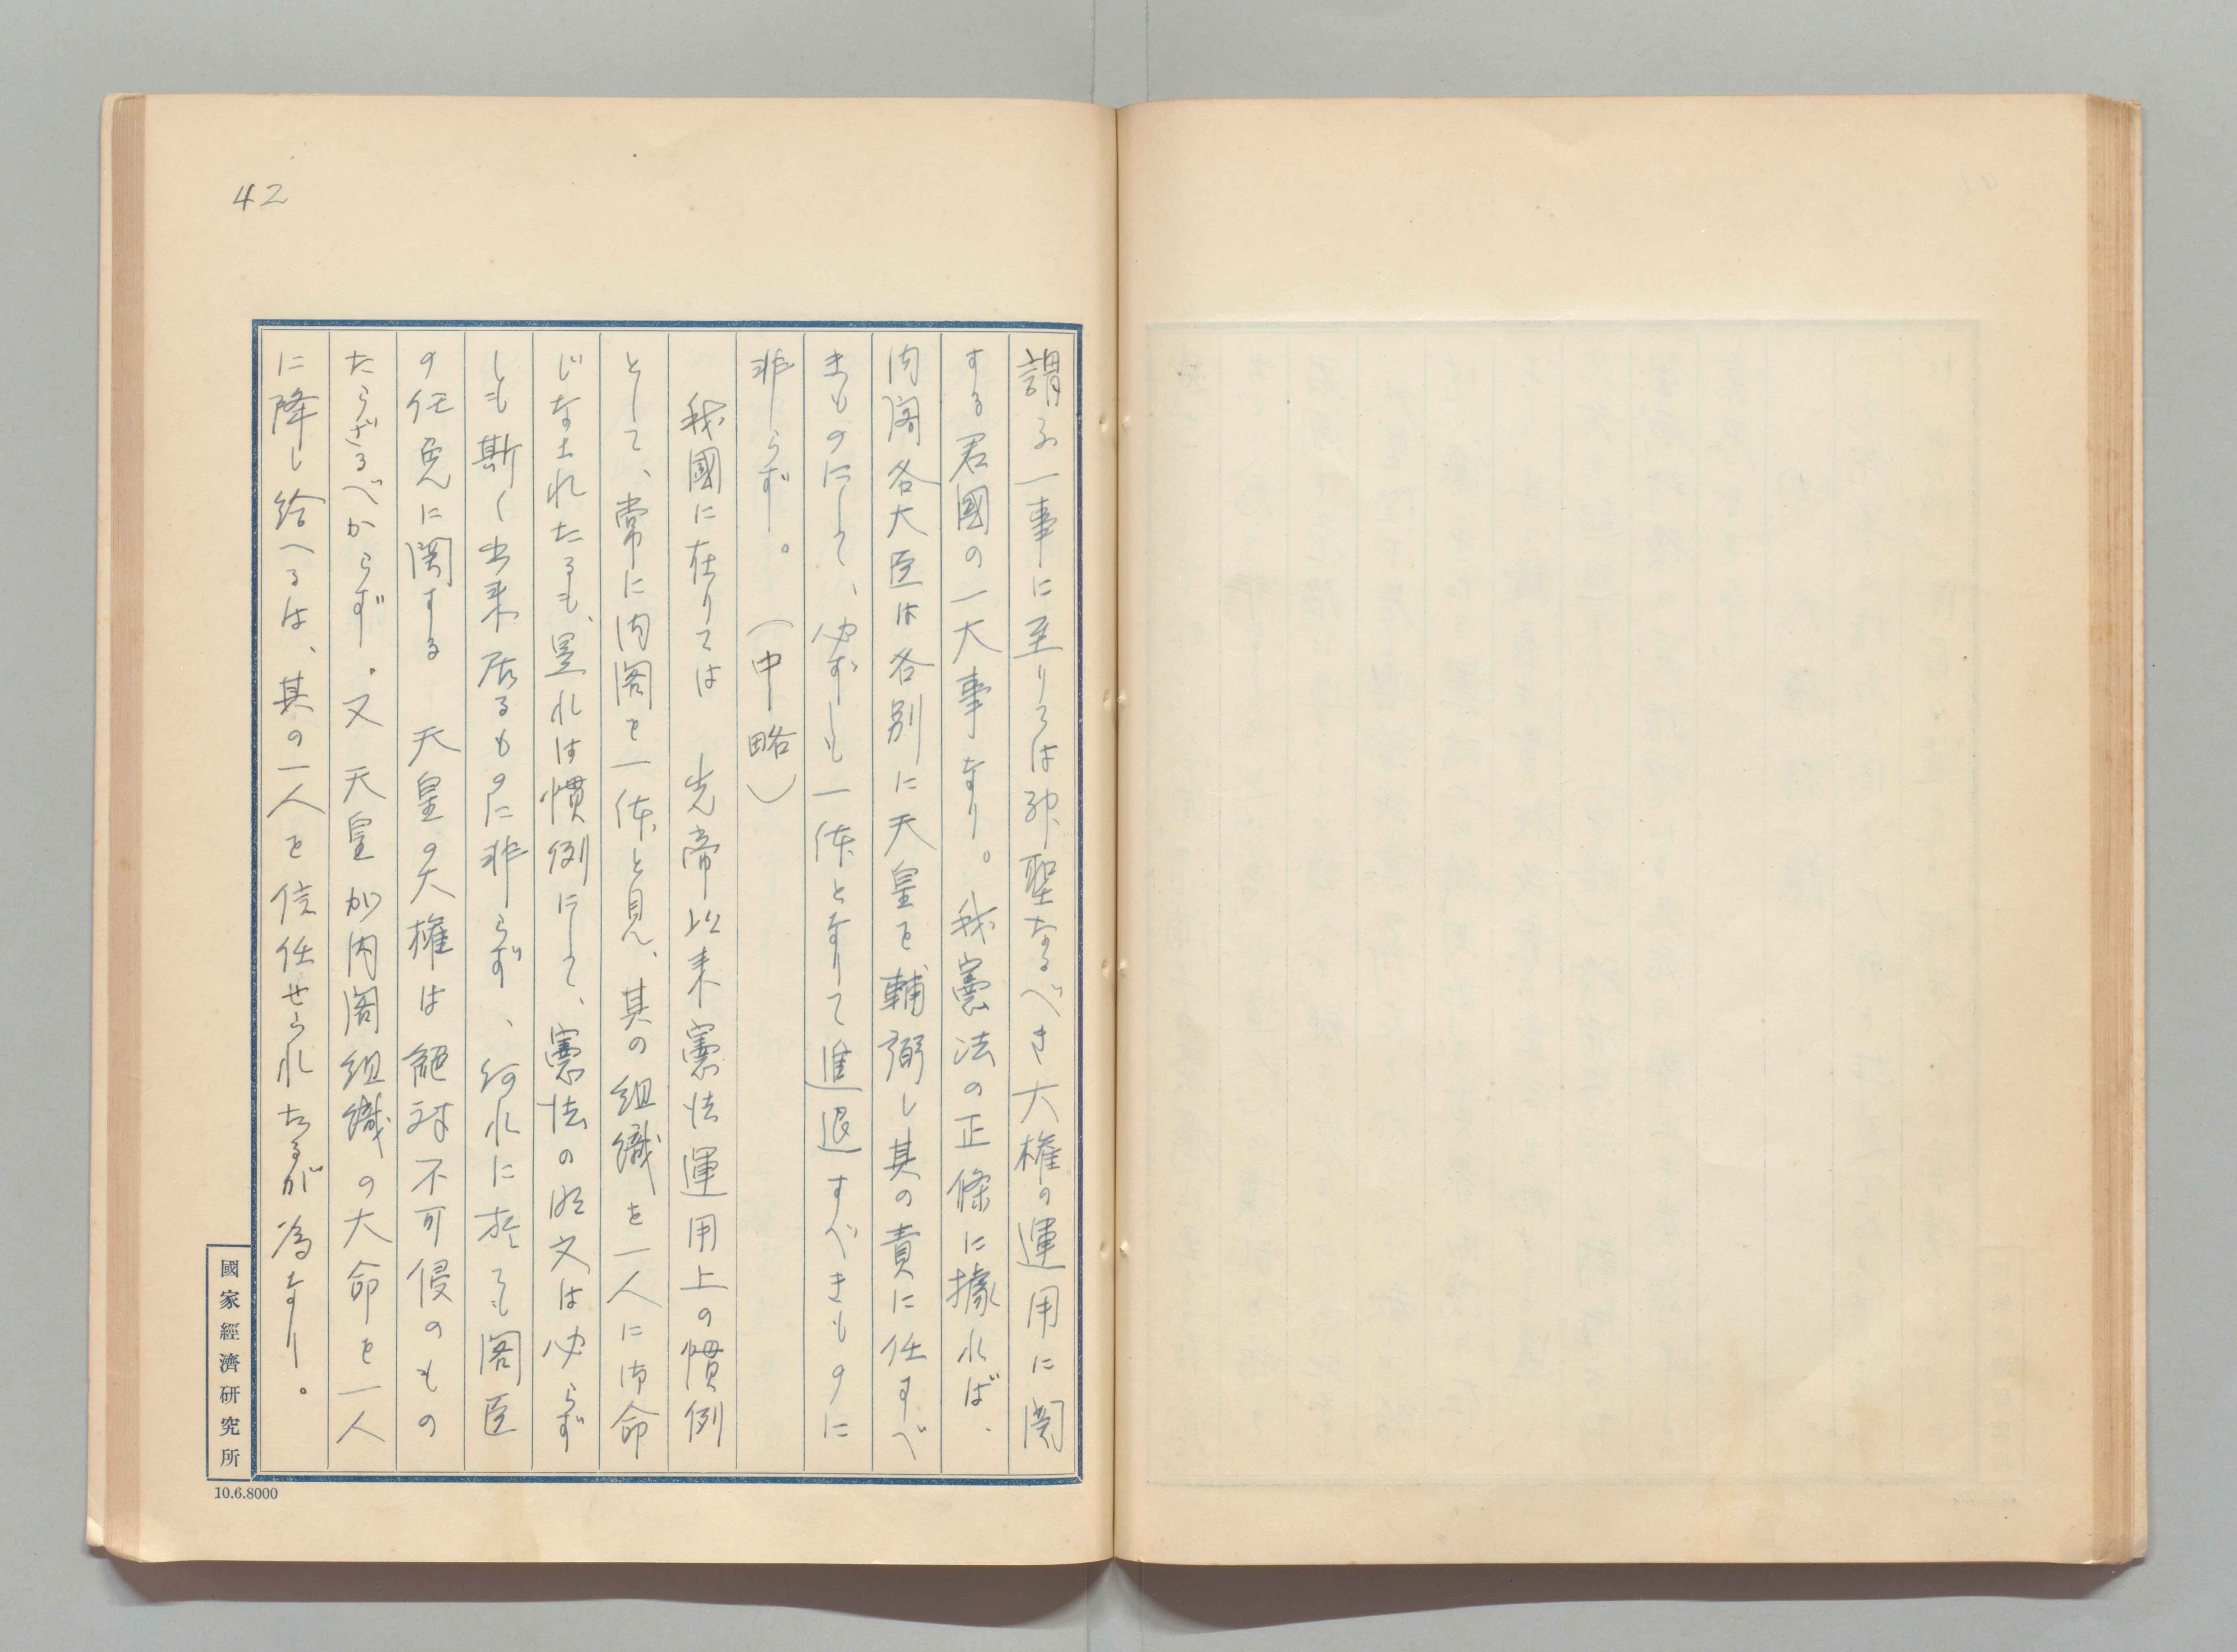 42
謂ふ一事に至りては神聖なるべき大権の運用に関
する君國の一大事なり。我憲法の正條に據れば、
内閣各大臣は各別に天皇を輔弼し其の責に任すべ
きものにして、必ずしも一体となりて進退すべきものに
非らず。（中略）
我國に在りては 先帝以来憲法運用上の慣例
として、常に内閣を一体と見、其の組織を一人に御命
じなされたるも、是れは慣例にして、憲法の明文は必らず
しも斯く出来居るものに非らず、何れに於ても閣臣
の任免に関する 天皇の大権は絶対不可侵のもの
たらざるべからず。又 天皇が内閣組織の大命を一人
に降し給へるは、其の一人を信任せられたるが為なり。
國家經濟研究所
10.6.8000